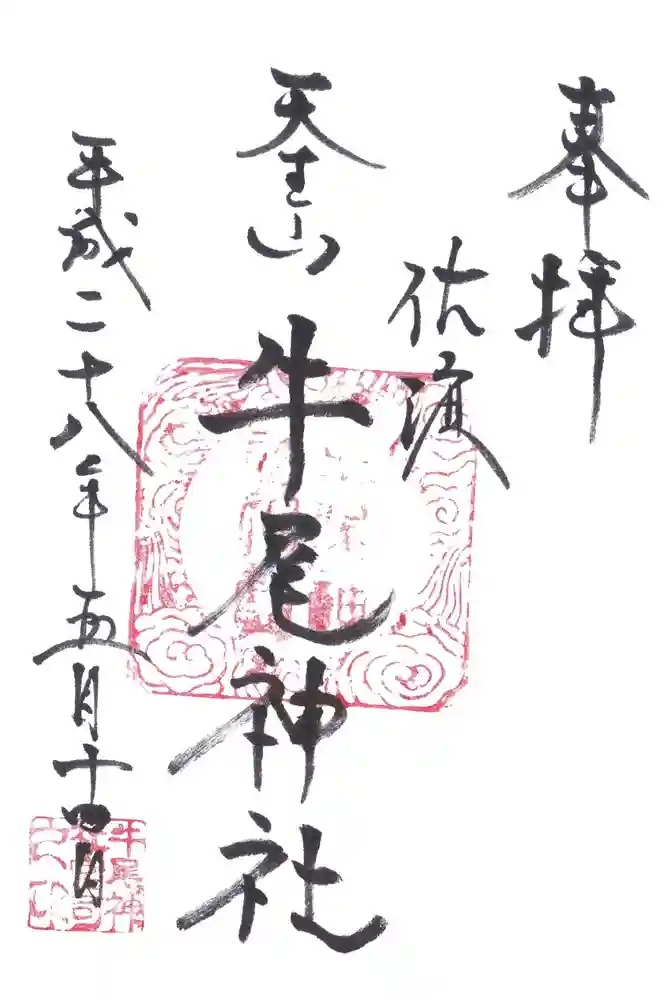 奉拝
佐渡
天王山
牛尾神社
平成二十八年五月十四日
牛尾神
社宮司
之印